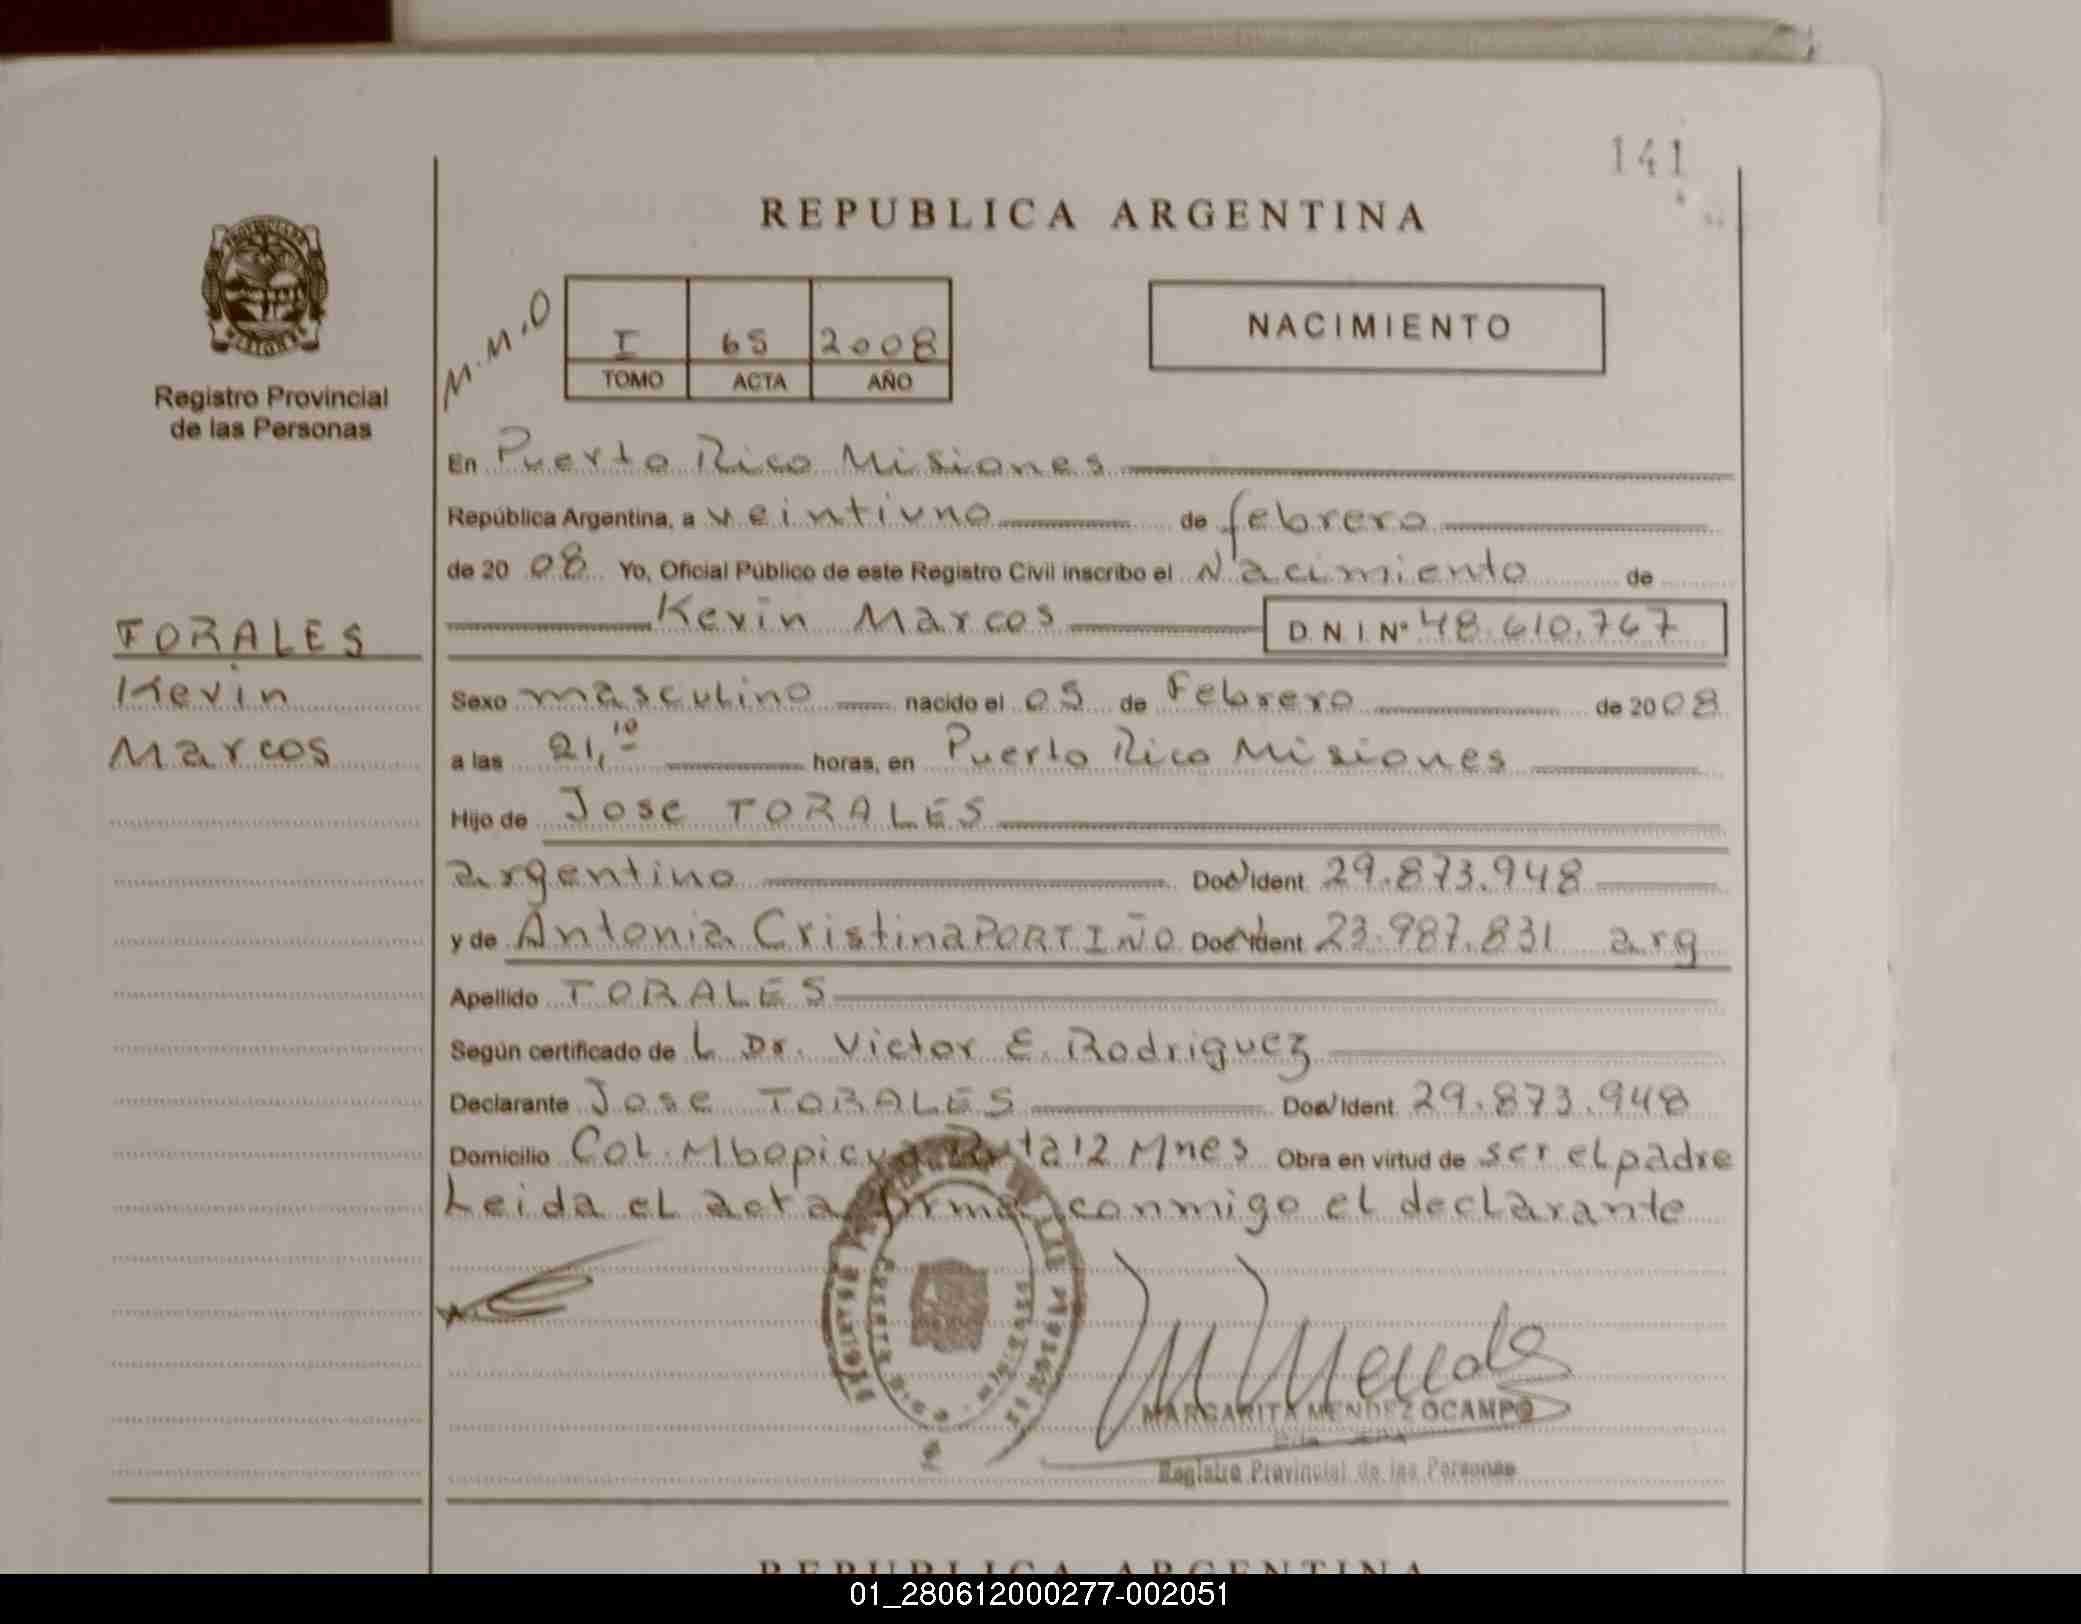 141
REPUBLICA ARGENTINA
M.M.O
I 65 2008
TOMO ACTA AÑO
NACIMIENTO
Registro Provincial
de las Personas
En Puerto Rico Misiones
República Argentina, a veintiuno de febrero
de 20 08 Yo, Oficial Público de este Registro Civil inscribo el Nacimiento de
Kevin Marcos D.N.I. Nº 48.610.767
TORALES
Kevin
Marcos
Sexo masculino nacido el 05 de Febrero de 2008
a las 21,10 horas, en Puerto Rico Misiones
Hijo de Jose TORALES
argentino Doc Ident 29.873.948
y de Antonia Cristina PORTIÑO Doc Ident 23.987.831 arg
Apellido TORALES
Según certificado de L Dr. Victor E. Rodriguez
Declarante Jose TORALES Doc Ident 29.873.948
Domicilio Col. Mbopicua Ruta 12 Mnes Obra en virtud de ser el padre
Leida el acta firma conmigo el declarante
MARGARITA MENDEZ OCAMPO
Registro Provincial de las Personas
REPUBLICA ARGENTINA
01_280612000277-002051